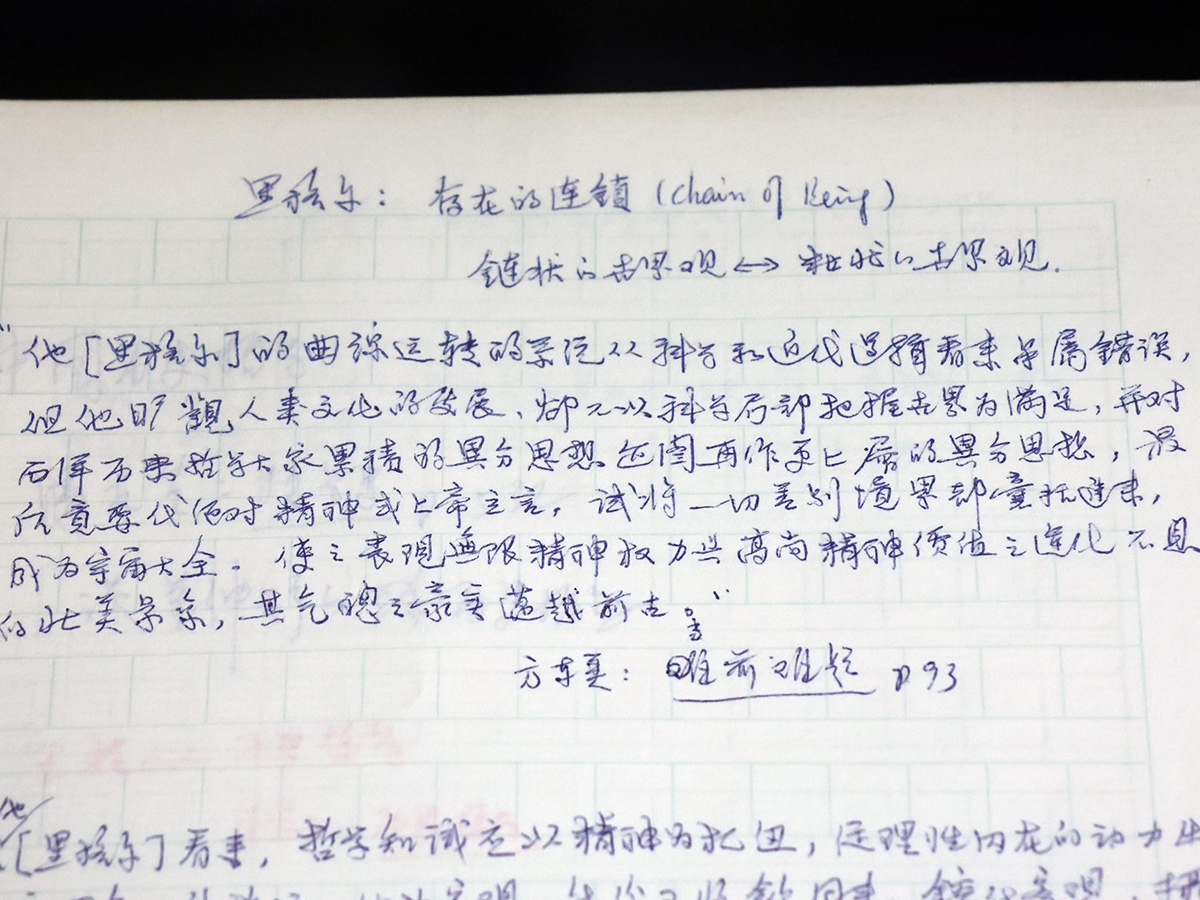 黑格尔： 存在的连鎖 (Chain of Being)
鏈状的世界观 ↔ 状的世界观.
"他 [黑格尔] 的曲线运转的系统从科学和近代逻辑看来虽属錯误，
但他旷觀人类文化的发展、却不以科学局部把握世界为满足，并对
西洋历来哲学大家累積的異分思想 再作更上層的異分思想，最
后竟要代绝对精神或上帝立言，试将一切差别境界都囊括進来，
成为宇宙大全。使之表现無限精神权力与高尚精神價值之進化不息
的壮美景象，其气魄之豪 蓋越前古。"
方东美： 难题 p 93
他
[黑格尔] 看来，哲学知識应以精神为枢纽，理性内在的动力